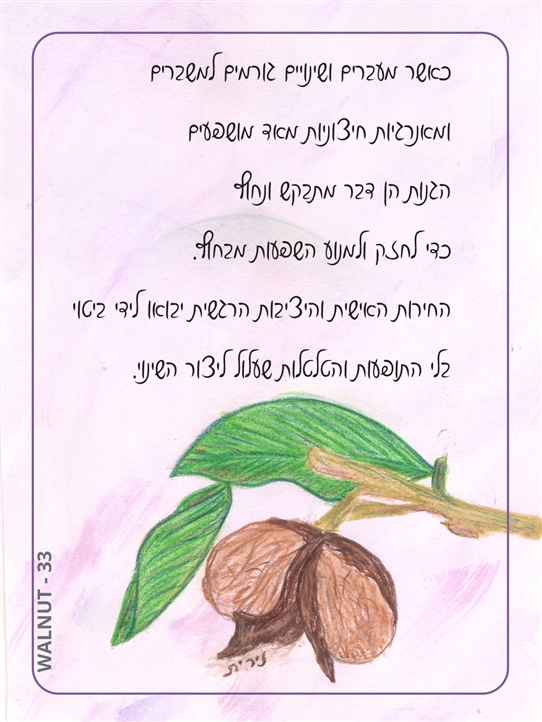 כאשר מעברים ושינויים גורמים למשברים
ומאנרגיות חיצוניות מאד מושפעים
הגנות הן דבר מתבקש ונחוץ
כדי לחזק ולמנוע השפעות מבחוץ.
החירות האישית והיציבות הרגשית יבואו לידי ביטוי
בלי התופעות והטלטלות שעלול ליצור השינוי.
WALNUT - 33
נירית